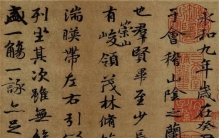 永和九年歲在
于會稽山陰之蘭
也羣賢畢至少長
有崇山峻領茂林脩
湍暎帶左右引
列坐其次雖無
盛一觴一詠亦足